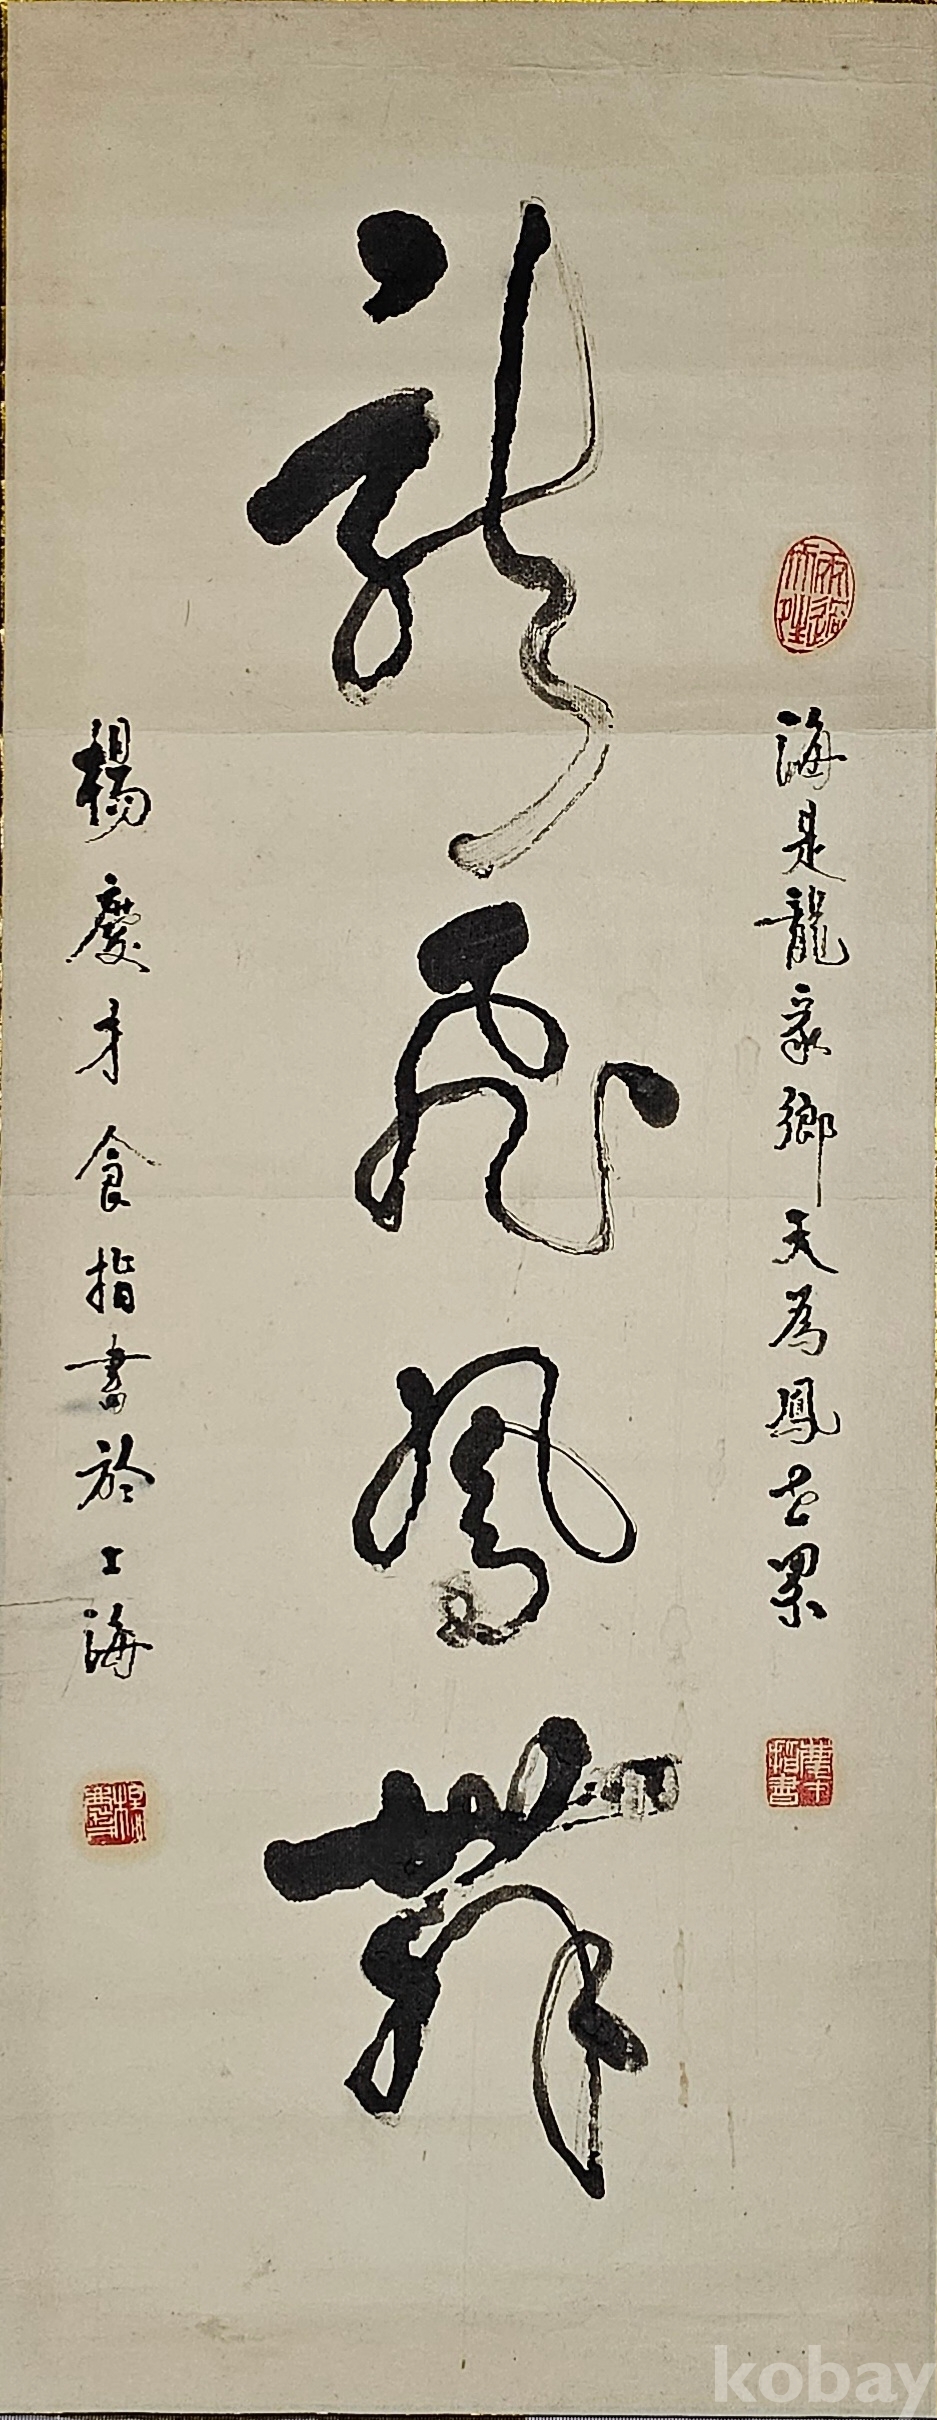 海是龍家鄉天為鳳世界
龍飛鳳舞
楊慶才食指書於上海
kobay